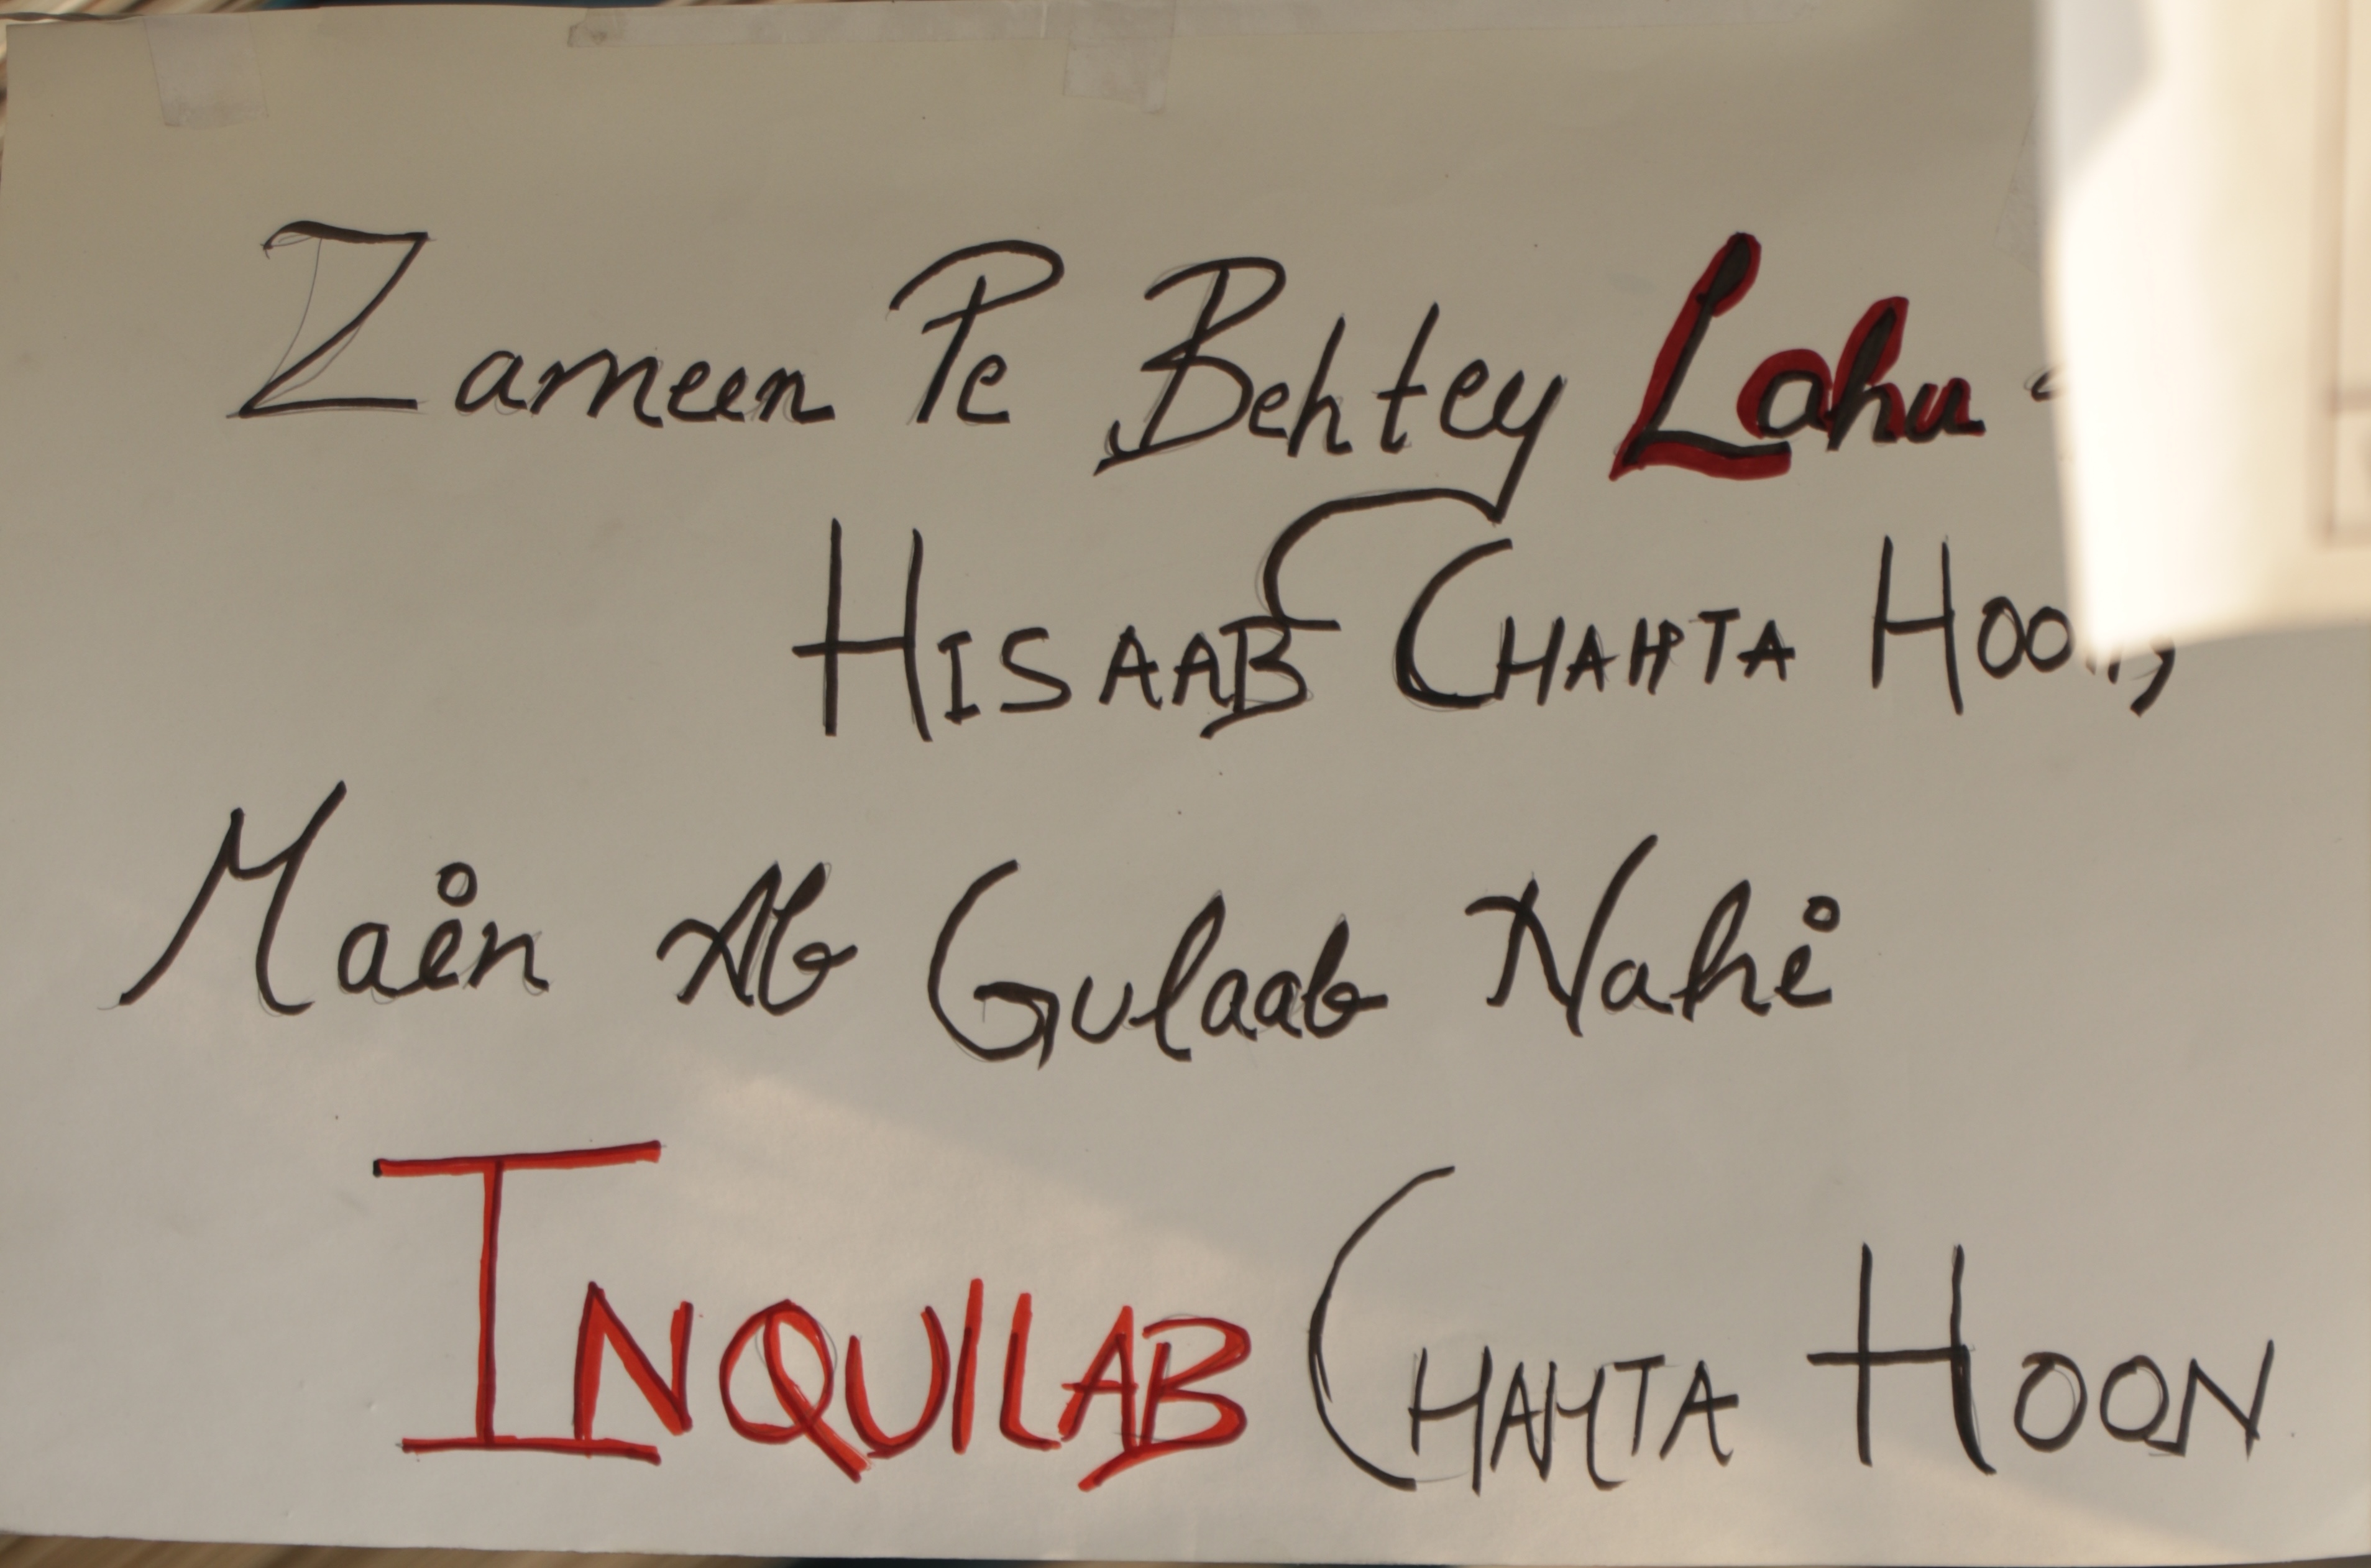 Zameen Pe Behtey Lahu
HISAAB CHAHTA HOON,
Main Ab Gulaab Nahi
INQUILAB CHAHTA HOON